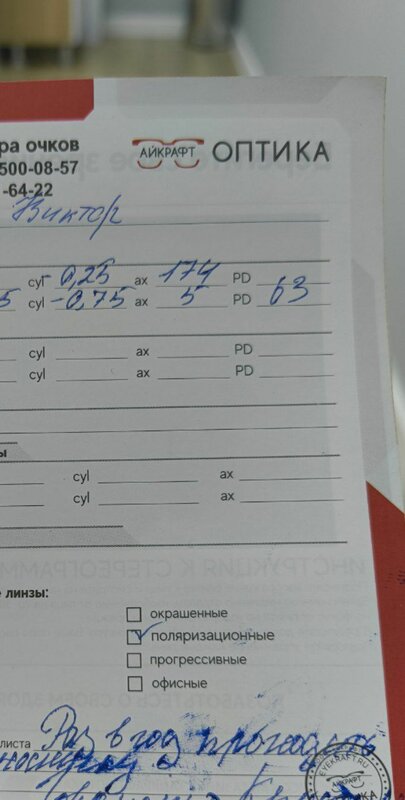 ра очков
500-08-57
-64-22
АЙКРАФТ ОПТИКА
Виктор
cyl -0,25 ax 174 PD
5 cyl -0,75 ax 5 PD 63
cyl ax PD
cyl ax PD
ы
cyl ax
cyl ax
е линзы:
окрашенные
поляризационные
прогрессивные
офисные
листа Раз в год проходить